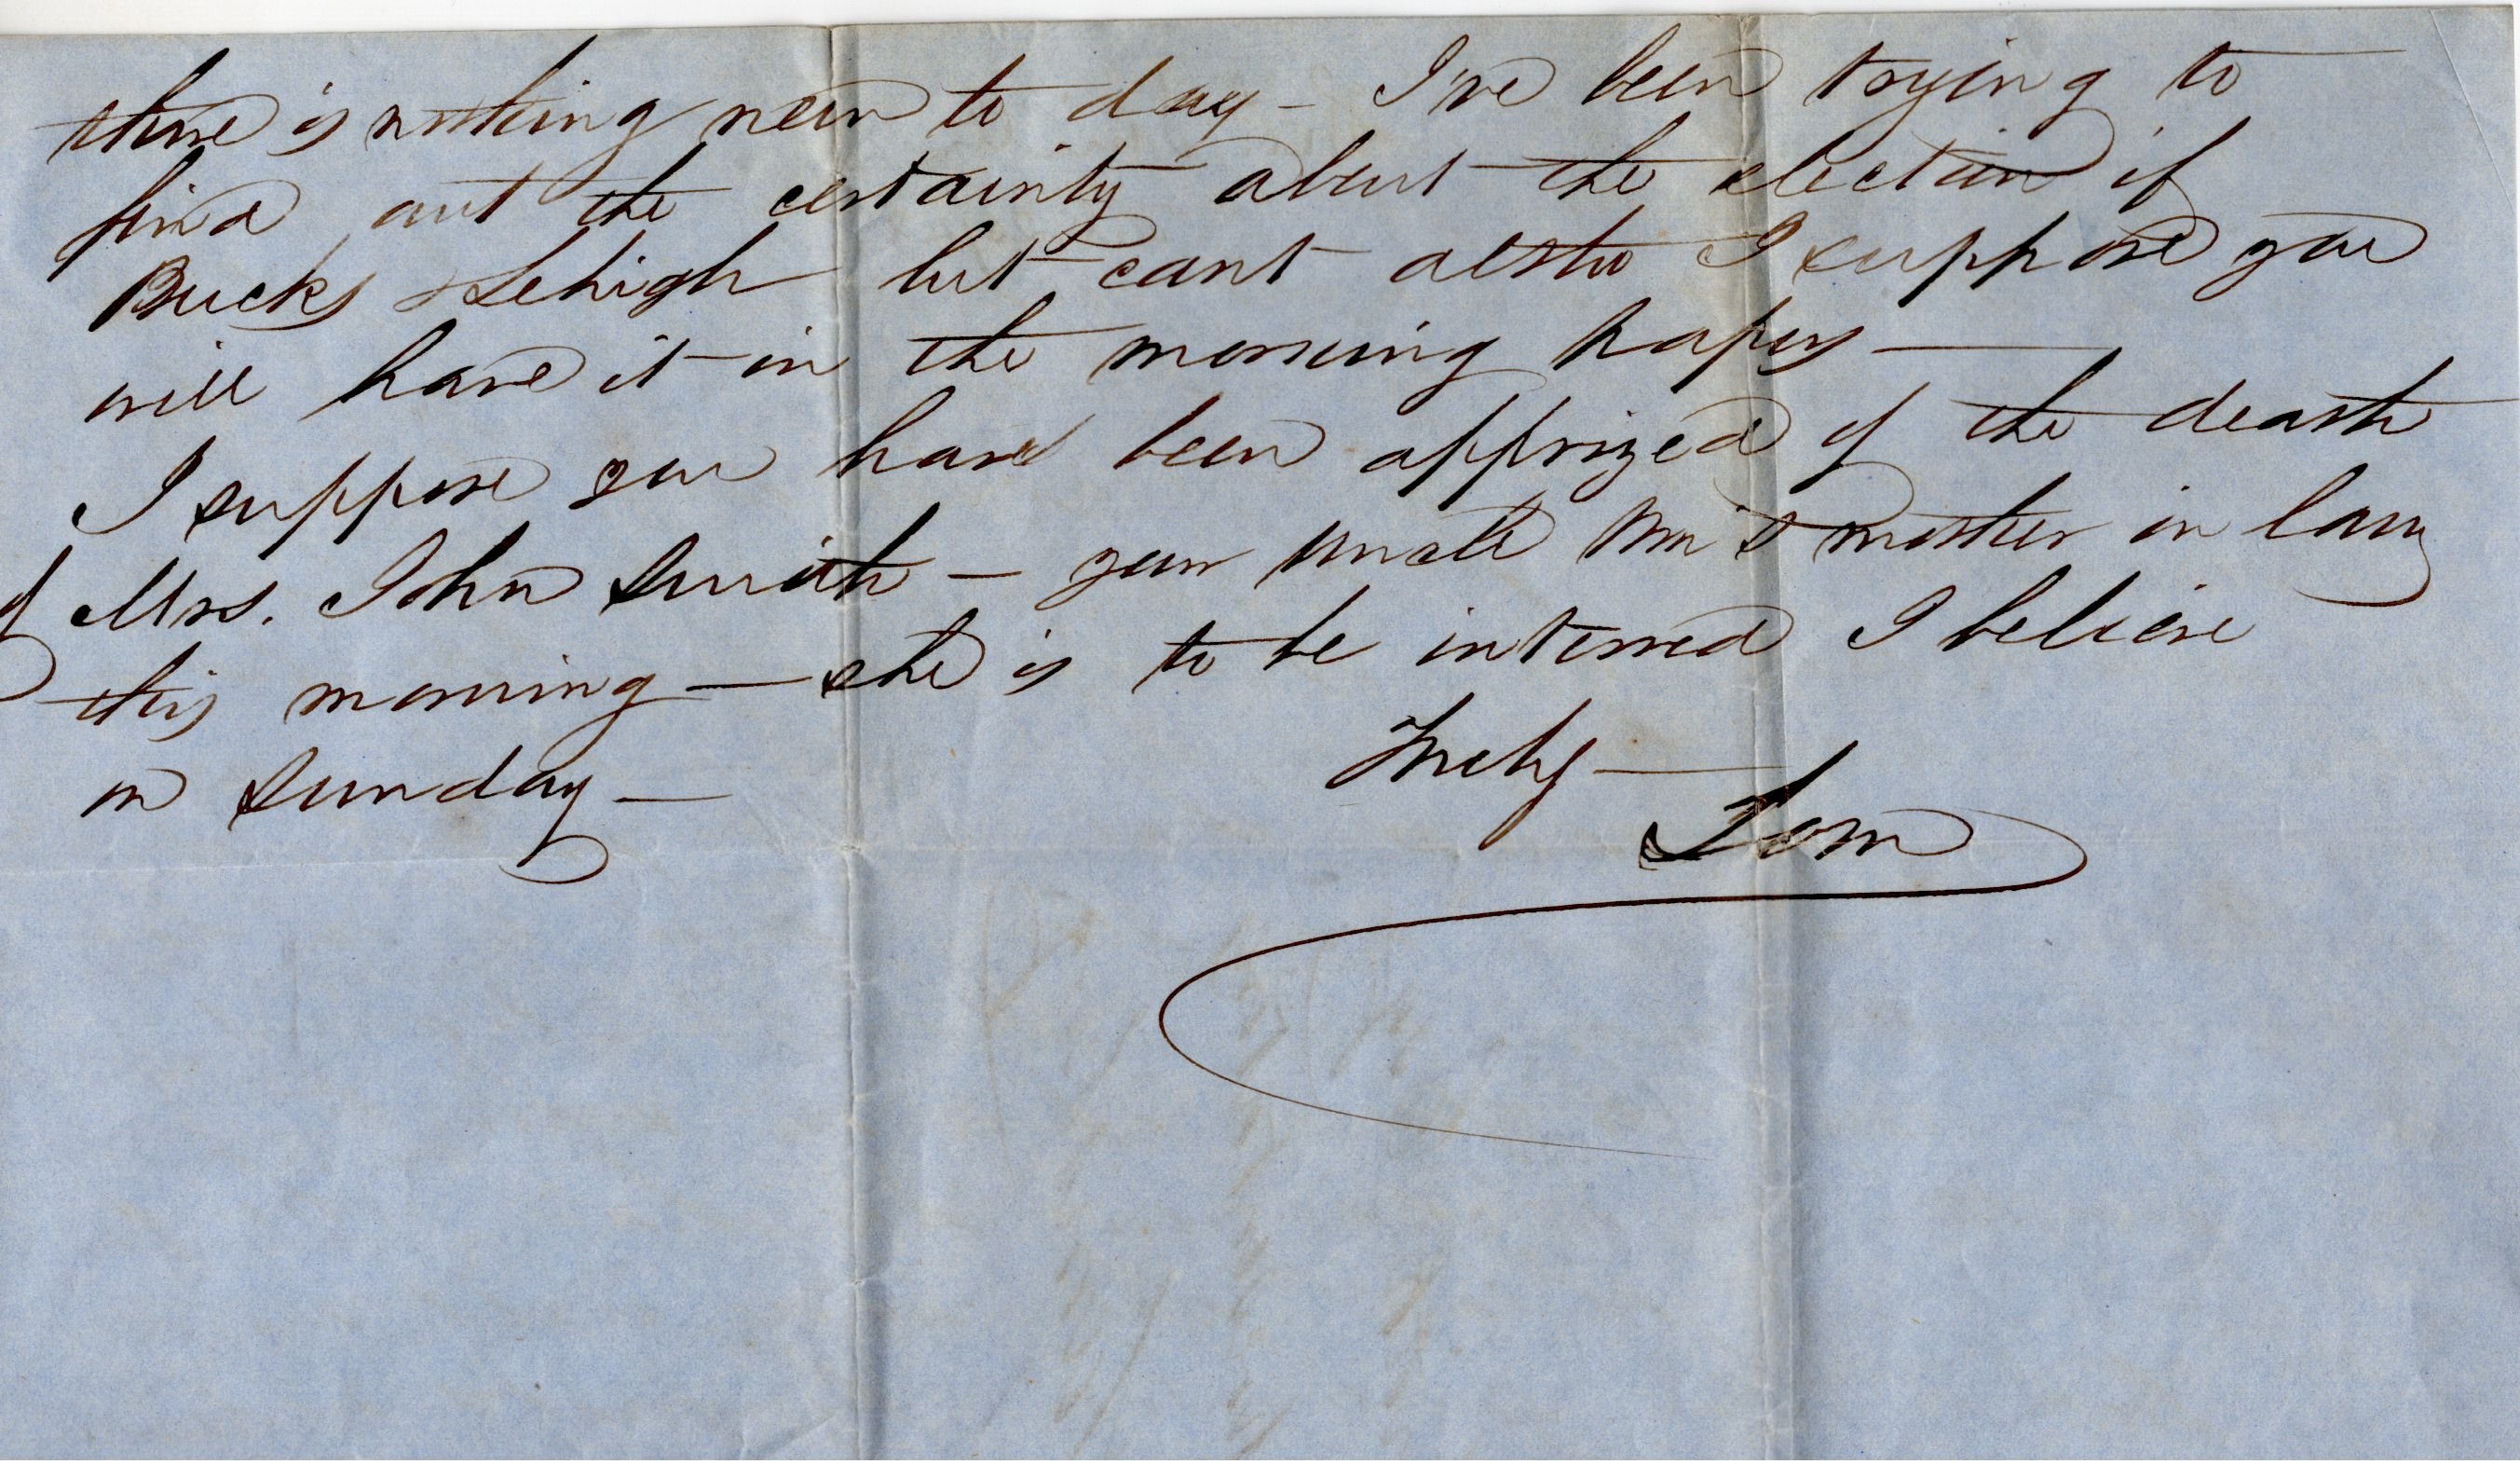 there is nothing new to day - I've been trying to
find out the certainty about the election of
Bucks & Lehigh but cant altho I suppose you
will have it in the morning papers —
I suppose you have been apprized of the death
of Mrs. John Smith — your Uncle Wm's mother in law
this morning — she is to be interred I believe
on Sunday —
Truly —
Tom